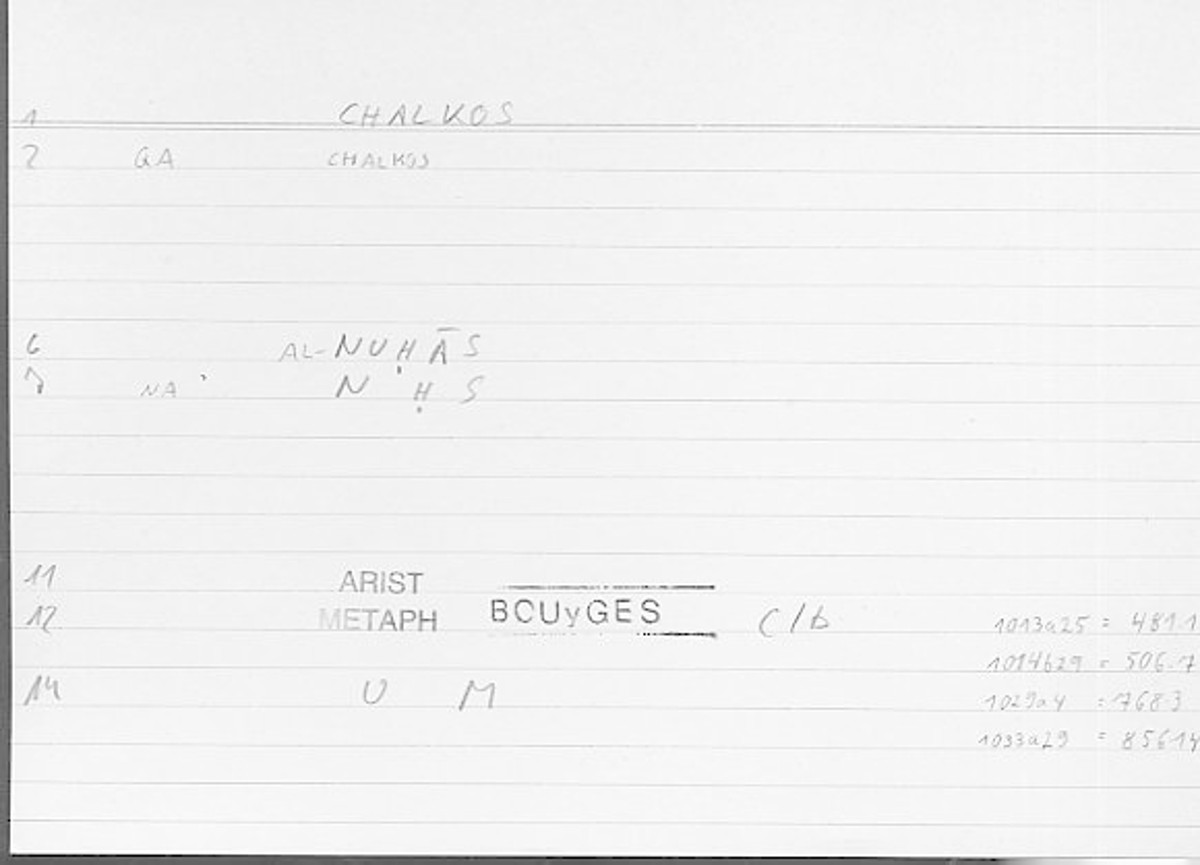 1 CHALKOS
2 GA CHALKOS
6 AL-NUḤĀS
7 NA N Ḥ S
11 ARIST
12 METAPH BOUyGES C/b 1013a25 = 481.1
1014b29 = 506.7
14 U M 1029a4 = 768.3
1033a29 = 856.14